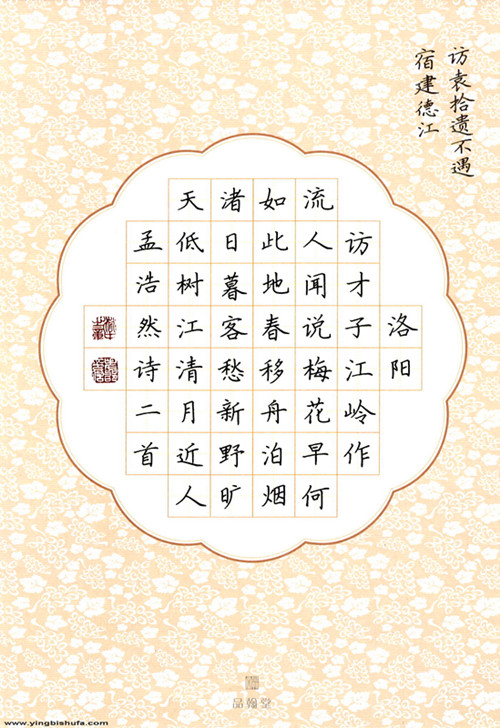 访袁拾遗不遇
宿建德江
洛阳
访才子江岭作
流人闻说梅花早何
如此地春移舟泊烟
渚日暮客愁新野旷
天低树江清月近人
孟浩然诗二首
品翰堂
www.yingbishufa.com